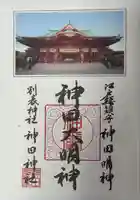 江戸総鎮守
神田明神
神田大明神
別表神社
神田神社